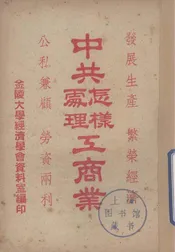 發展生產 繁榮經濟
中共怎樣
處理工商業
公私兼顧 勞資兩利
金陵大學經濟學會資料室編印
上
圖書館
藏書